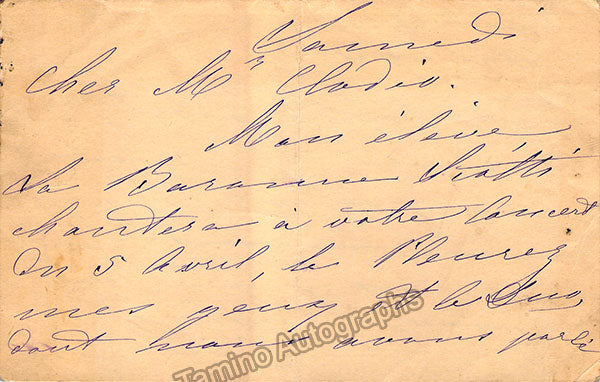 Samedi
Cher Mr Clodio.
Mon élève,
La Baronne Scotti
chantera à votre Concert
du 5 Avril, le Pleurez
mes yeux et le Duo
dont nous avons parlé
Tamino Autographs